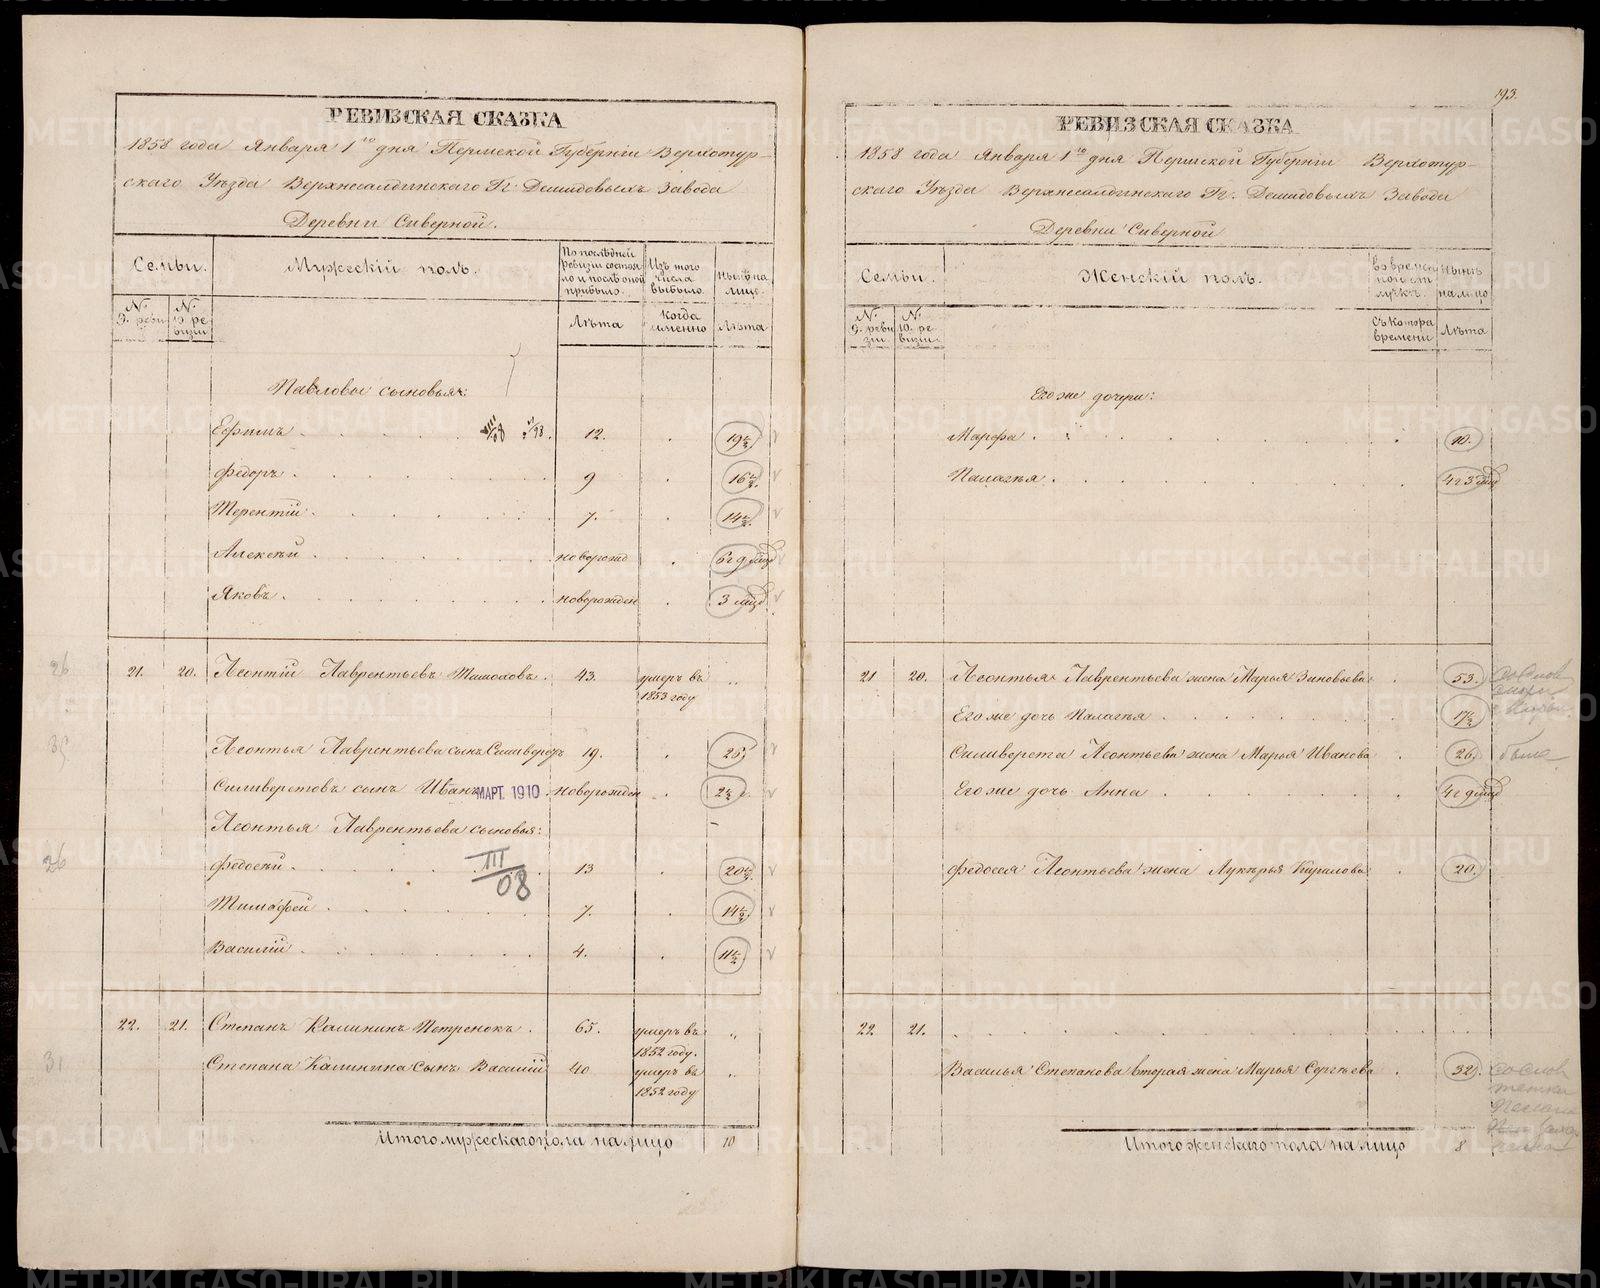 РЕВИЗСКАЯ СКАЗКА
1858 года Января 1го дня Пермской Губернiи Верхотур-
скаго Уѣзда Верхнесалдинскаго Гг. Демидовыхъ Завода
Деревни Сиверной.
Семьи.
Мужескiй полъ.
По послѣдней ревизiи состоя-ло и послѣ оной прибыло.
Изъ того числа выбыло.
Нынѣ на лицо.
№ 9. реви
№ 10 ре-визiи
Лѣта
Когда именно
Лѣта
Павловы сыновья:
Ефимъ 12. 19½
Федоръ 9 16½.
Терентiй 7. 14½.
Алексѣй новорожд 6г 9 мцъ
Яковъ новорожден 3 мцъ
26
21. 20. Леонтiй Лаврентьевъ Тимоховъ. 43. умеръ въ 1853 году „
Леонтья Лаврентьева сынъ Силиверстъ 19. 25½
Силиверстовъ сынъ Иванъ МАРТ. 1910 новорожден 2½
Леонтья Лаврентьева сыновья:
26
Федосѣй III/08 13 20½.
Тимофей 7. 14½
Василiй 4. 11½
22. 21. Степанъ Калининъ Петренокъ. 65. умеръ въ 1852 году. „
31
Степана Калинина сынъ Василiй 40 умеръ въ 1852 году „
Итого мужескаго пола на лицо 10
193.
РЕВИЗСКАЯ СКАЗКА
1858 года Января 1го дня Пермской Губернiи Верхотур-
скаго Уѣзда Верхнесалдинскаго Гг. Демидовыхъ Завода
Деревни Сиверной
Семьи.
Женскiй полъ.
Во времен ной от лучкѣ.
Нынѣ на лицо
№ 9. реви зiи
№ 10. ре-визiи.
Съ котора времени
Лѣта
Его же дочери:
Марфа 10.
Палагья 4г 3 мцъ
21 20. Леонтья Лаврентьева жена Марья Зиновьева 53.
Его же дочь Палагья 17½
Силиверста Леонтьева жена Марья Иванова 26.
Его же дочь Анна 4г 9 мцъ
Федосея Леонтьева жена Лукерья Кирилова 20.
22 21.
Василья Степанова вторая жена Марья Сергѣева 32.
Итого женскаго пола на лицо 8
METRIKI.GASO-URAL.RU